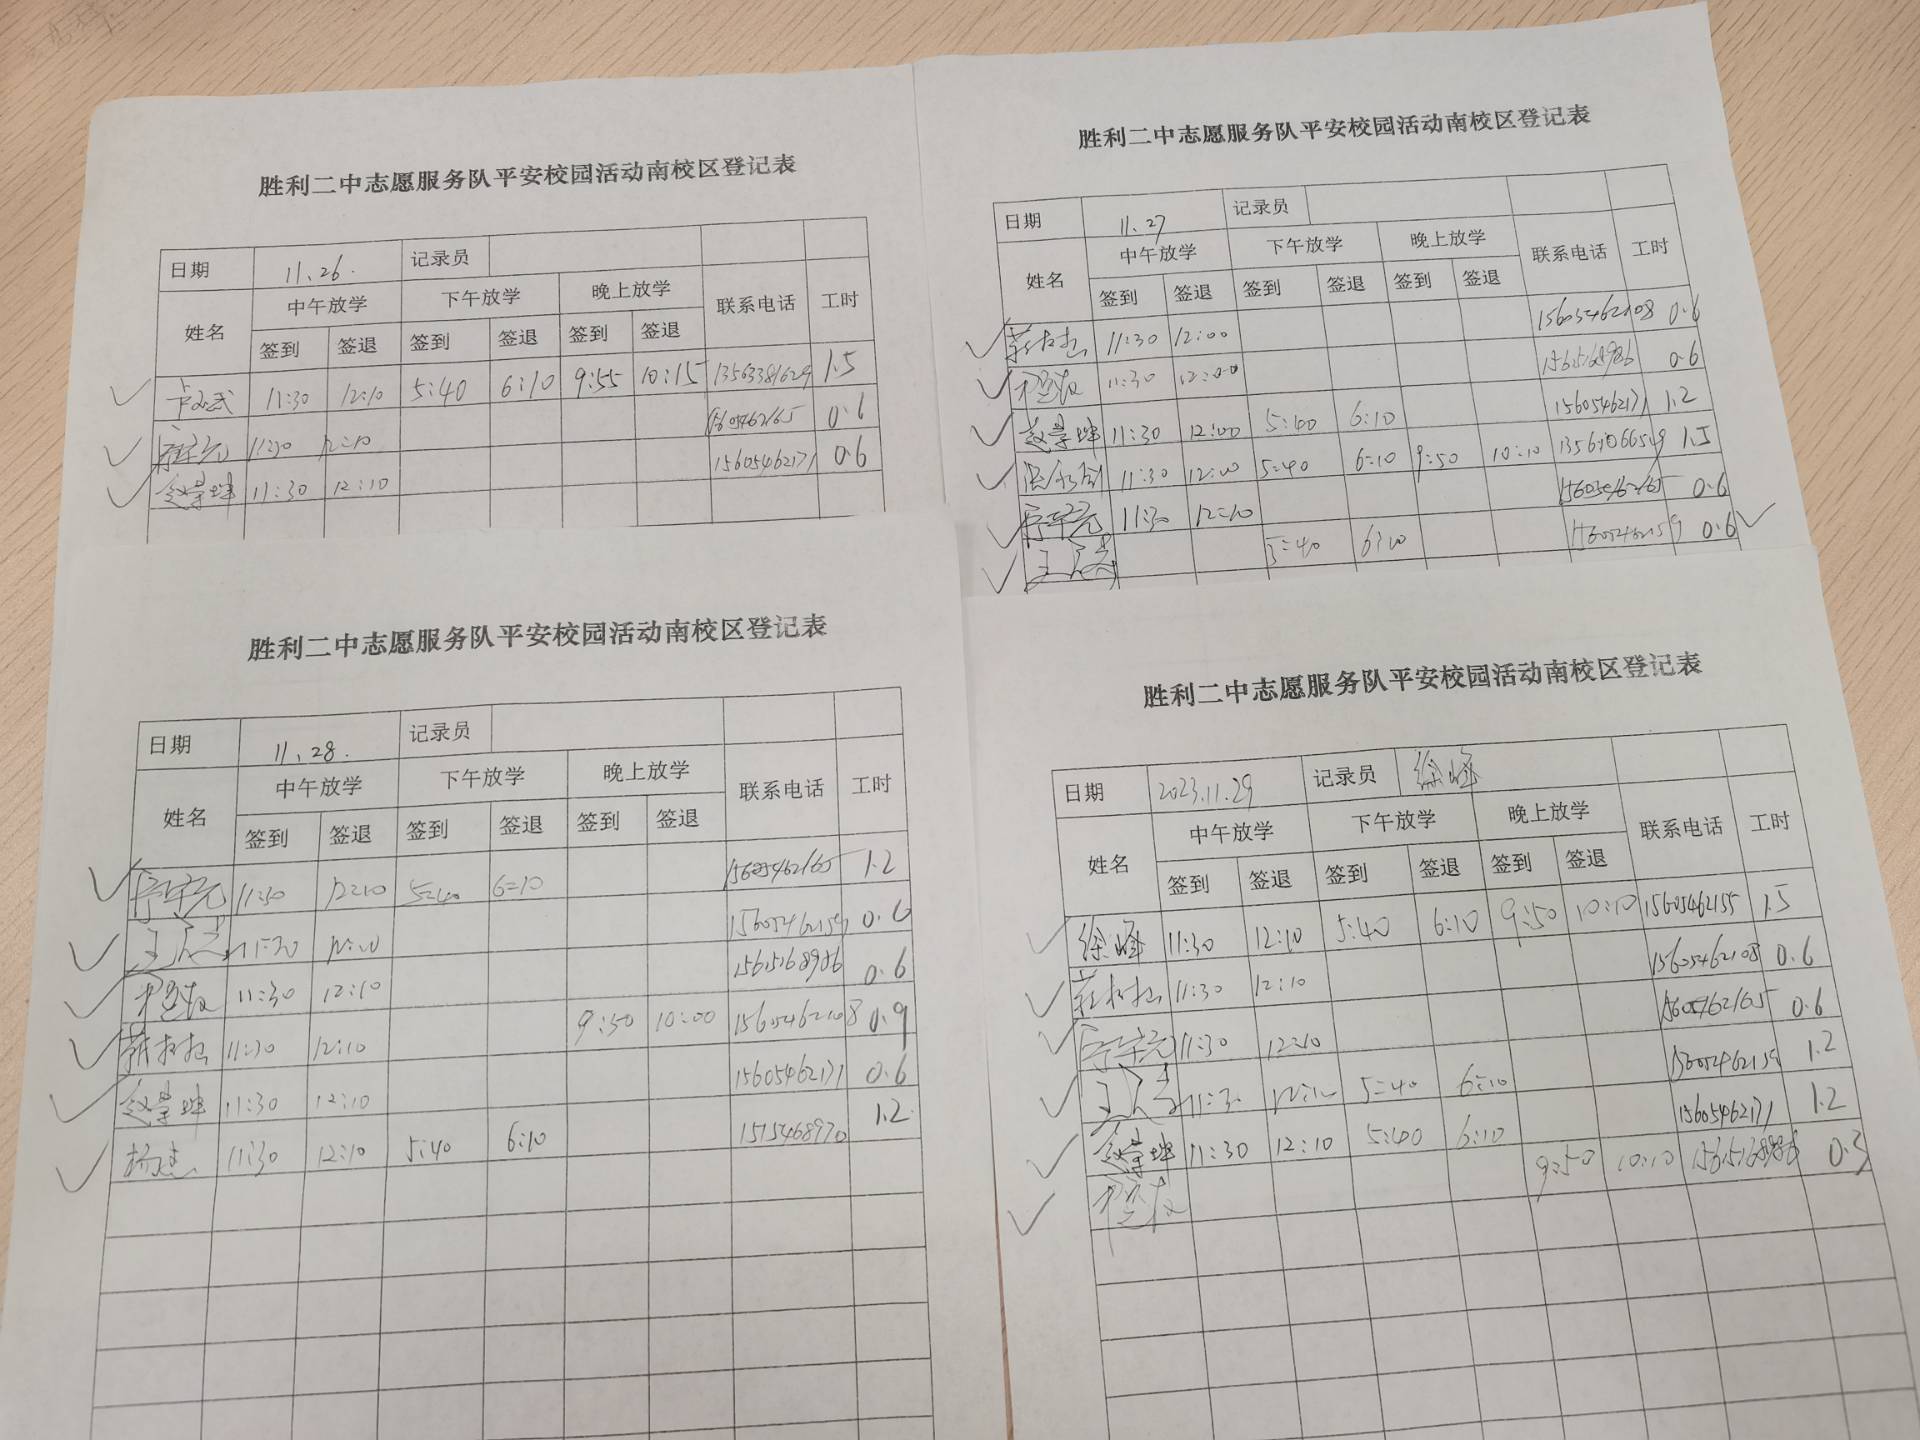 胜利二中志愿服务队平安校园活动南校区登记表
日期 11.26. 记录员
姓名 中午放学 下午放学 晚上放学 联系电话 工时
签到 签退 签到 签退 签到 签退
11:30 12:10 5:40 6:10 9:55 10:15 13563381629 1.5
11:30 12:10 15605462165 0.6
赵景坤 11:30 12:10 15605462171 0.6
胜利二中志愿服务队平安校园活动南校区登记表
日期 11.27 记录员
姓名 中午放学 下午放学 晚上放学 联系电话 工时
签到 签退 签到 签退 签到 签退
11:30 12:00 15605462108 0.6
11:30 12:00 15615168986 0.6
赵景坤 11:30 12:00 5:40 6:10 15605462171 1.2
11:30 12:00 5:40 6:10 9:50 10:10 1.5
11:30 12:10 15605462165 0.6
5:40 6:10 15605462159 0.6
胜利二中志愿服务队平安校园活动南校区登记表
日期 11.28. 记录员
姓名 中午放学 下午放学 晚上放学 联系电话 工时
签到 签退 签到 签退 签到 签退
11:30 12:10 5:40 6:10 15605462165 1.2
11:30 12:10 15605462159 0.6
11:30 12:10 15615168986 0.6
11:30 12:10 9:50 10:00 15605462108 0.9
赵景坤 11:30 12:10 15605462171 0.6
11:30 12:10 5:40 6:10 1515468970 1.2
胜利二中志愿服务队平安校园活动南校区登记表
日期 2023.11.29 记录员 徐峰
姓名 中午放学 下午放学 晚上放学 联系电话 工时
签到 签退 签到 签退 签到 签退
徐峰 11:30 12:10 5:40 6:10 9:50 10:10 15605462155 1.5
11:30 12:10 15605462108 0.6
11:30 12:10 15605462165 0.6
11:30 12:10 5:40 6:10 15605462159 1.2
赵景坤 11:30 12:10 5:40 6:10 15605462171 1.2
9:50 10:10 15615168986 0.3